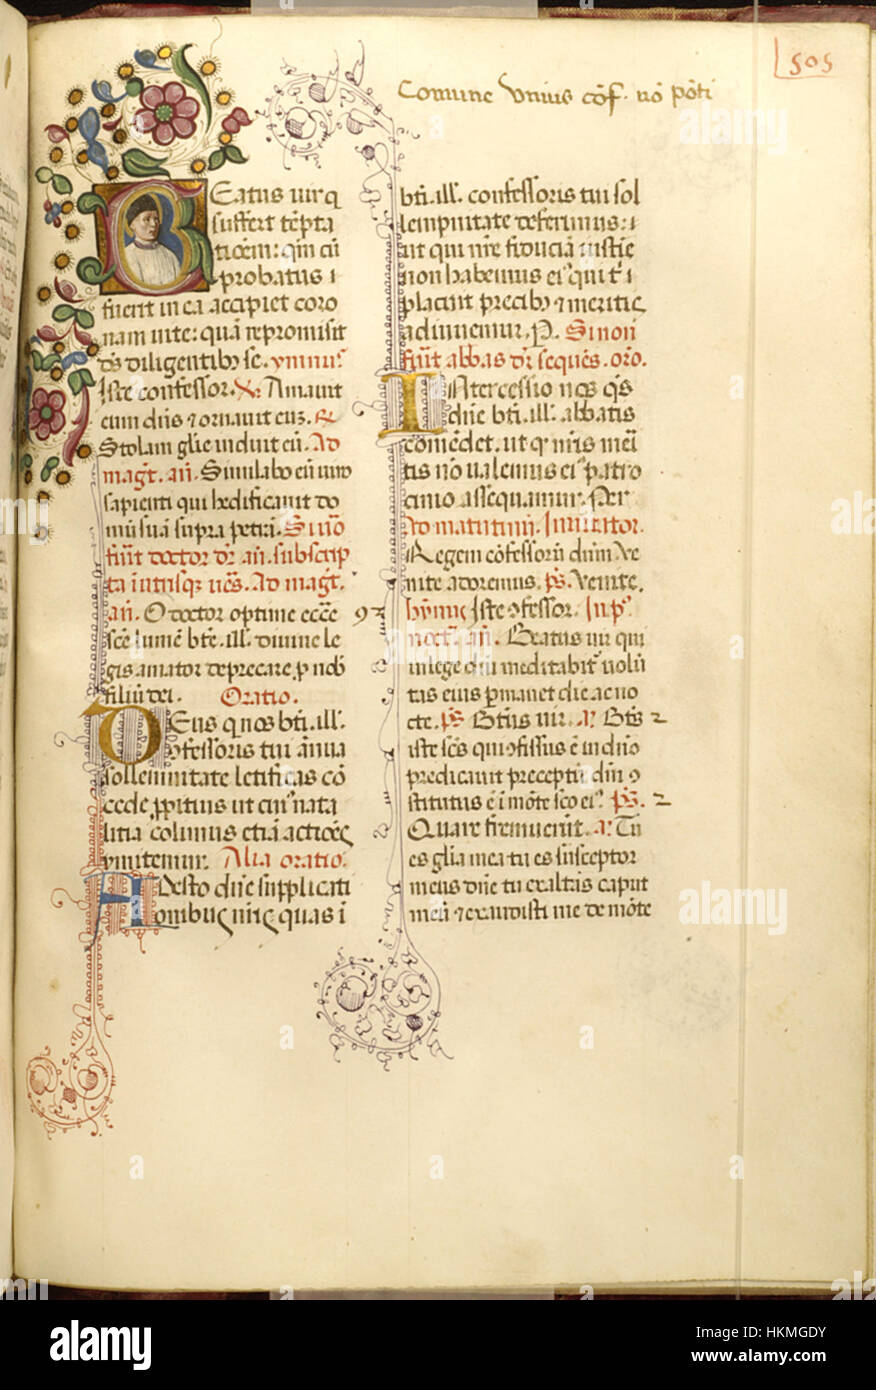 Comune Unius cōf. nō pōti
505
BEatus uir q
suffert tēpta
tiōem: qm̄ cū
probatus i
fuerit inea accipiet coro
nam uite: quā repromisit
dš diligentibꝫ se. ymnus
Iste confessor. ℣. Amauit
eum dn̄s ⁊ ornauit eum. ℟
Stolam glīe induit eū. Ad
magt̄. an̄. Similabo eū uiro
sapienti qui hedificauit do
mū suā supra petrā. Si nō
fūit doctor dr̄ an̄. subscrip
ta Ad magt̄.
an̄. O doctor optime eccē
sc̄e lumē bt̄e. ill. diuine le
gis amator deprecare p nob
filiū dei. Oratio.
DEus q nos bt̄i. ill.
ꝯfessoris tui ānua
sollemnitate letificas cō
cede ꝓpitius ut cuiꝰ nata
litia colimus etiā actiōes
ymitemur. Alia oratio.
ADesto dn̄e supplicati
onibus nr̄is quas ī
bt̄i. ill. confessoris tui sol
lempnitate deferimus: i
ut qui nr̄e fiduciā iustīe
non habemus eiꝰ qui t̄i
placuit precibꝫ ⁊ meritis
adiuuemur. P. Si non
fūit abbas dr̄ sequēs. oro.
INtercessio nos qs̄
dn̄e bt̄i. ill. abbatis
comēdet. ut qꝰ nr̄is meī
tis nō ualemus eiꝰ patro
cinio assequamur. Per
Ad matutinū. Inuitator.
Regem cōfessorū dn̄m ve
nite adoremus. ps̄. Venite.
hymnꝰ Iste ꝯfessor. In pꝰ
noct̄. an̄. Beatus uir qui
in lege dn̄i meditabit̄ uolū
tas eius pmanet die ac no
cte. ps̄ Bt̄us uir. a. Bt̄s
iste sc̄s qui ꝯfissus ē in dn̄o
predicauit preceptū dn̄i ꝯ
stitutus ē ī mōte sco eiꝰ. ps̄.
Quare fremuerūt. a. Tu
es glīa mea tu es susceptor
meus dn̄e tu exaltās caput
meū ⁊ exaudisti me de mōte
a alamy stock photo
alamy
Image ID: HKMGDY
www.alamy.com